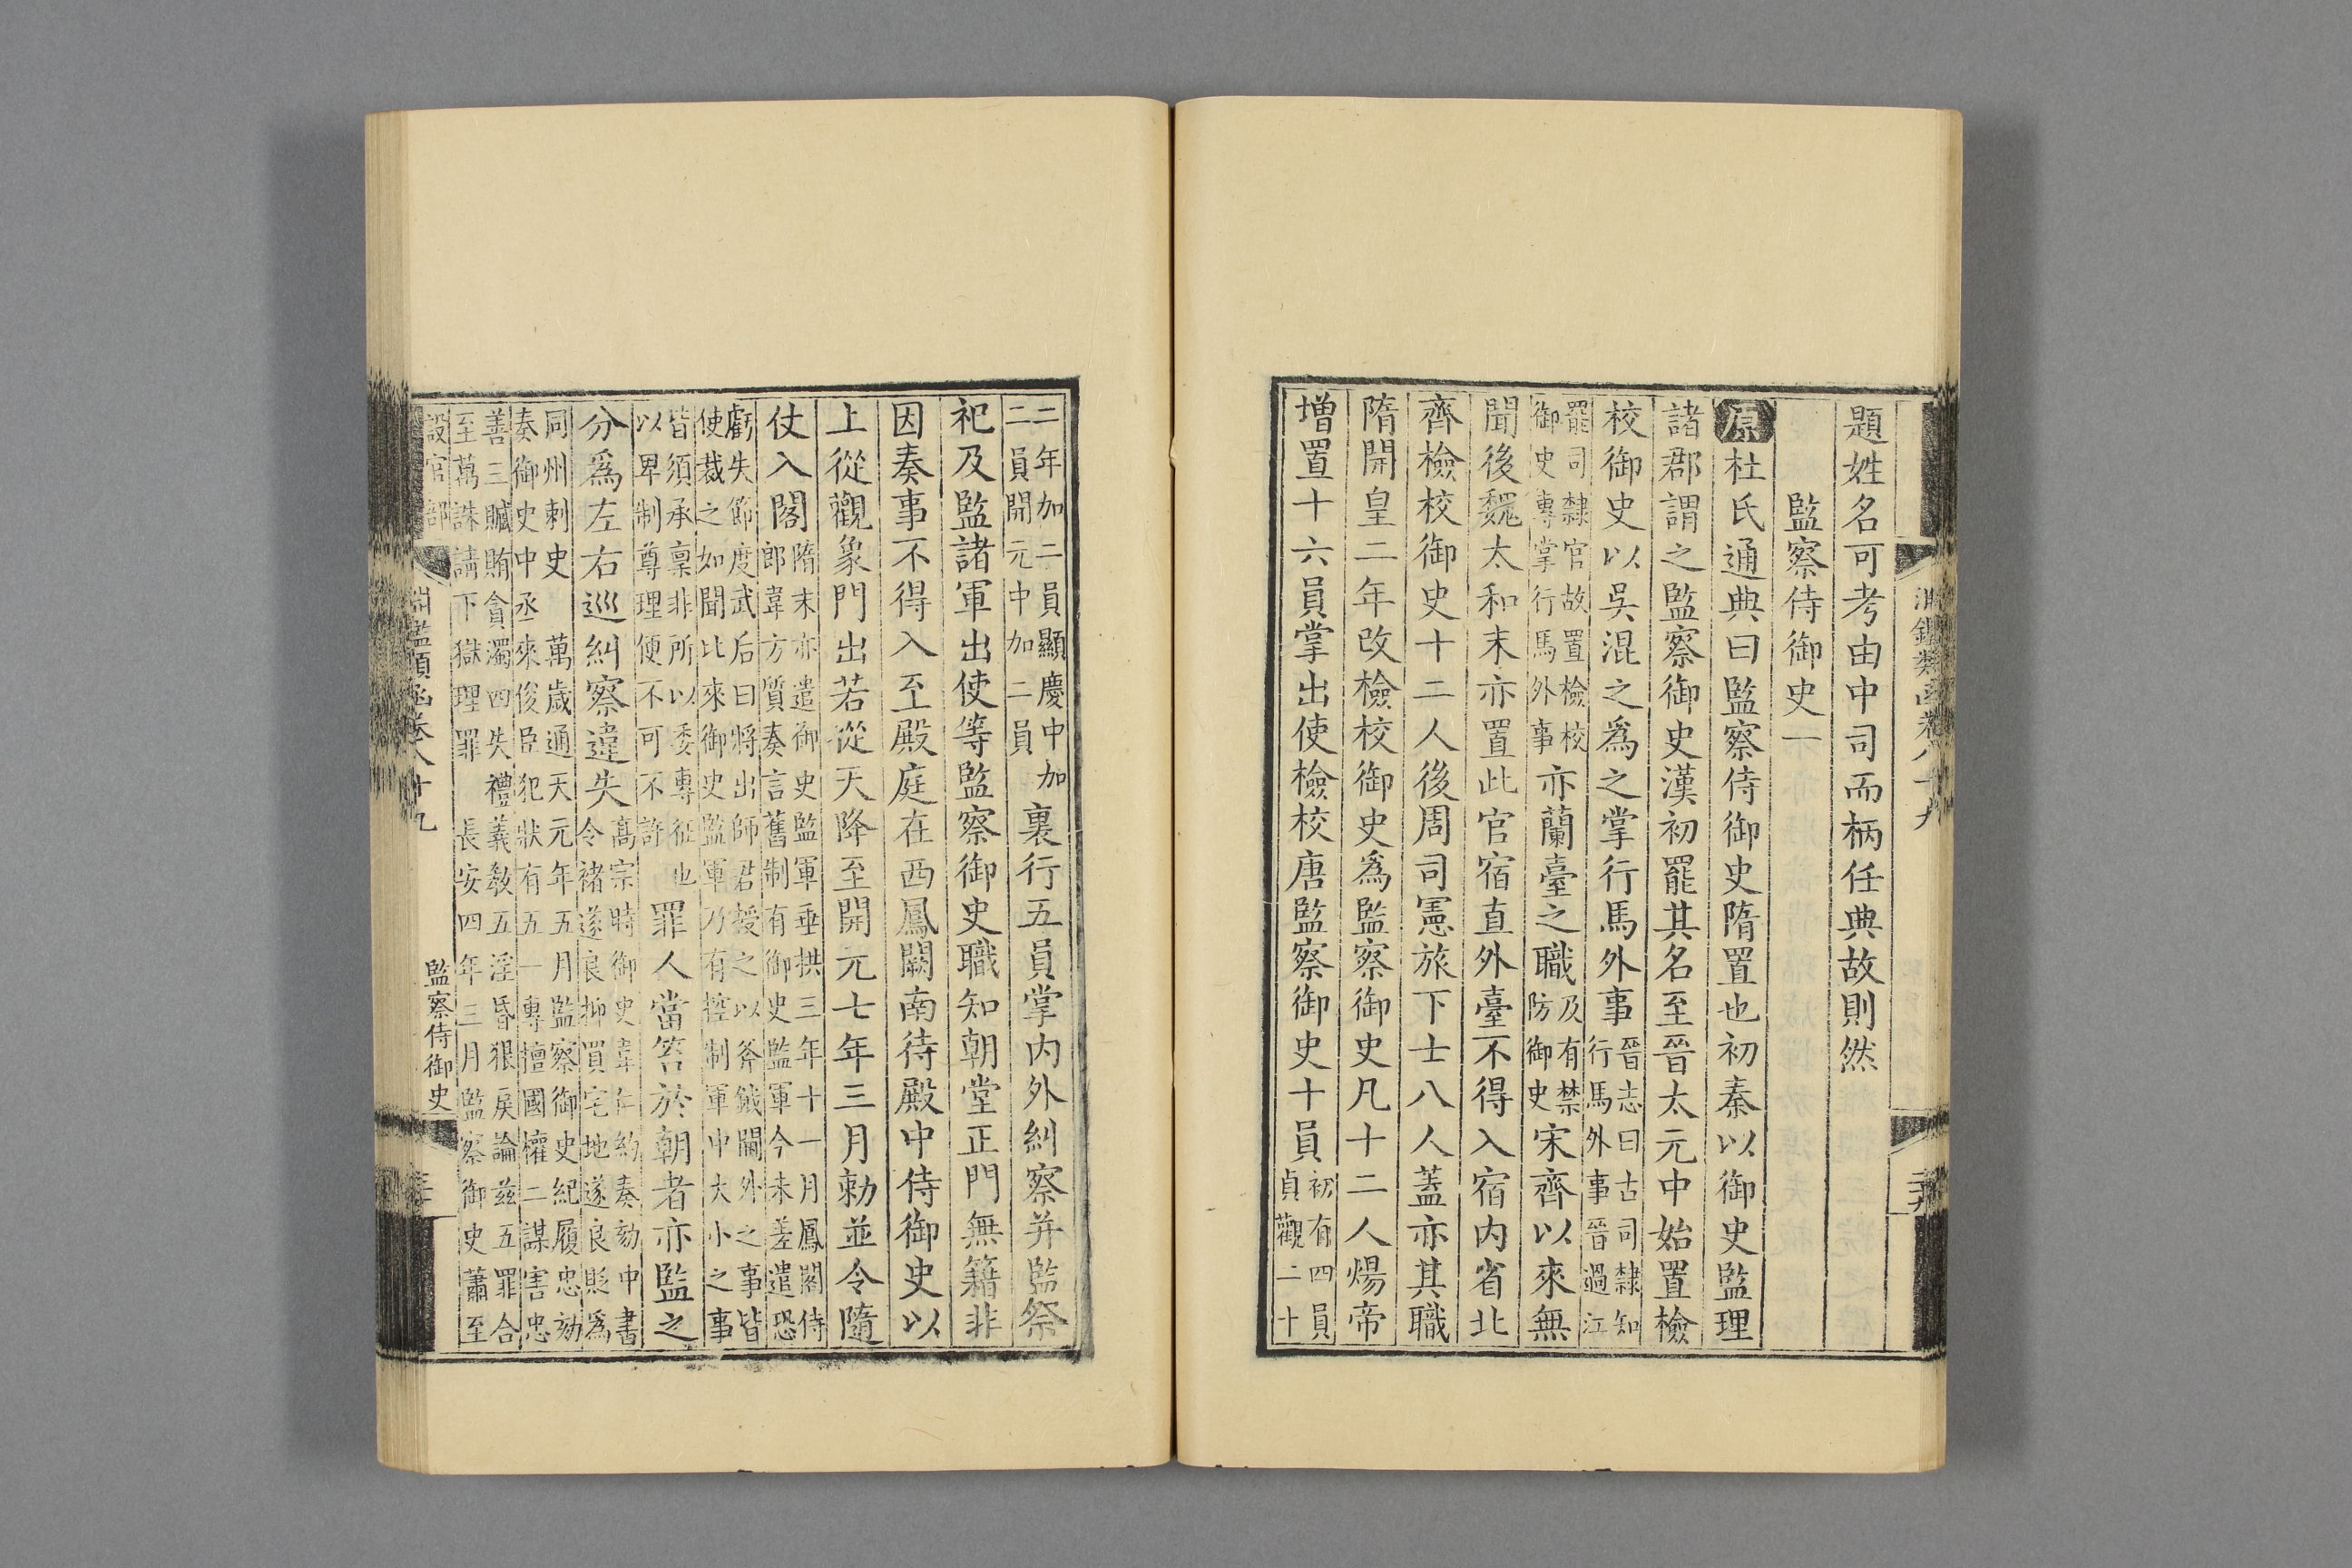 淵鑑類函卷八十九
題姓名可考由中司而柄任典故則然
監察侍御史一
原杜氏通典曰監察侍御史隋置也初秦以御史監理
諸郡謂之監察御史漢初罷其名至晉太元中始置檢
校御史以吳混之爲之掌行馬外事晉志曰古司隸知行馬外事晉過江
罷司隸官故置檢校御史專掌行馬外事亦蘭臺之職及有禁防御史宋齊以來無
聞後魏太和末亦置此官宿直外臺不得入宿內省北
齊檢校御史十二人後周司憲旅下士八人蓋亦其職
隋開皇二年改檢校御史爲監察御史凡十二人煬帝
增置十六員掌出使檢校唐監察御史十員初有四員貞觀二十
二年加二員顯慶中加二員開元中加二員裏行五員掌內外糾察并監祭
祀及監諸軍出使等監察御史職知朝堂正門無籍非
因奏事不得入至殿庭在西鳳闕南待殿中侍御史以
上從觀象門出若從天降至開元七年三月勅並令隨
仗入閤隋末亦遣御史監軍垂拱三年十一月鳳閣侍郎韋方質奏言舊制有御史監軍今未差遣恐
虧失節度武后曰將出師君授之以斧鉞閫外之事皆使裁之如聞比來御史監軍乃有控制軍中大小之事
皆須承禀非所以委專征也以卑制尊理便不可不許罪人當笞於朝者亦監之
分爲左右巡糾察違失高宗時御史韋仁約奏劾中書令褚遂良抑買宅地遂良貶爲
同州刺史　萬歲通天元年五月監察御史紀履忠劾奏御史中丞來俊臣犯狀有五一專擅國權二謀害忠
善三贓賄貪濁四失禮義教五淫昏狠戾論茲五罪合至萬誅請下獄理罪　長安四年三月監察御史蕭至
設官部
淵鑑類函卷八十九
監察侍御史